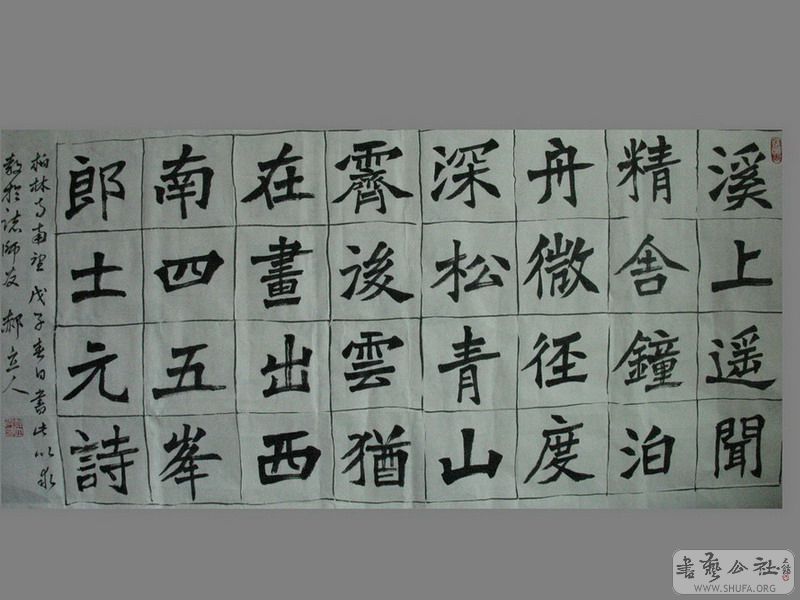 溪上遥聞
精舍鐘泊
舟微径度
深松青山
霽後雲猶
在畫出西
南四五峯
郎士元詩
柏林寺南望 戊子春日書此以求
教於諸師友 郝立人
書藝公社
WWW.SHUFA.ORG